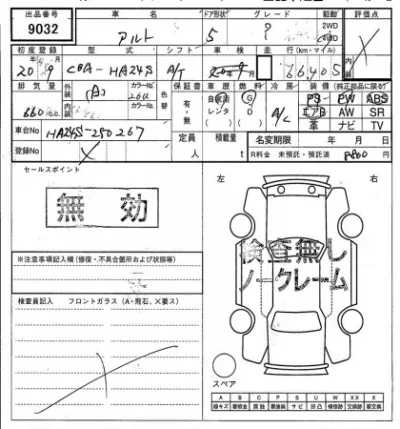 出品番号 車名 ドア形状 グレード 駆動 評価点
9032 アルト 5 ? 2WD 4WD
初度登録 型式 シフト 車検 走行(km・マイル)
20年9月 CBA-HA24S A/T 66405
排気量 外装 内装 カラーNo. 色替 保証書 車歴 燃料 冷房 装備(純正部品に限る)
660cc 有・無 自家用 レンタ ( ) G D ( ) A/C PS PW ABS
エアB AW SR
革 ナビ TV
車台No HA24S-250267
定員 人 積載量 t 名変期限 年 月 日
登録No
R料金 未預託・預託済
セールスポイント
無効
左 右
検査無し
ノークレーム
※注意事項記入欄(修復・不具合箇所および状態等)
検査員記入 フロントガラス(A・飛石、X要ス)
スペア
A B C P S U W X XX